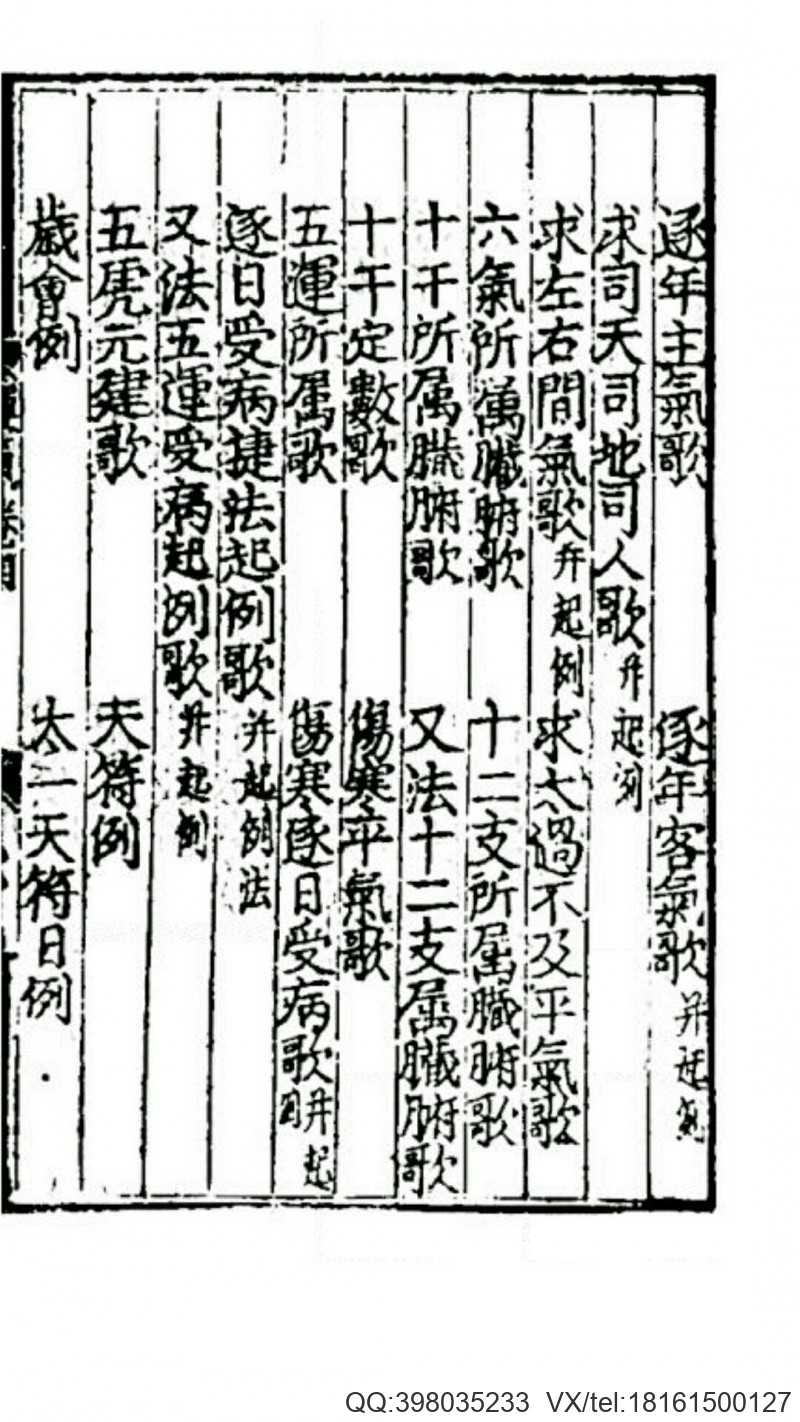 逐年主氣歌 逐年客氣歌 并起例
求司天司地司人歌 并起例
求左右間氣歌 并起例 求太過不及平氣歌
六氣所属臓腑歌 十二支所属臓腑歌
十干所属臓腑歌 又法十二支属臓腑歌
十干定數歌 傷寒平氣歌
五運所属歌 傷寒逐日受病歌 并起例
逐日受病捷法起例歌 并起例法
又法五運受病起例歌 并起例
五虎元建歌 天符例
歲會例 太一天符日例
QQ:398035233 VX/tel:18161500127